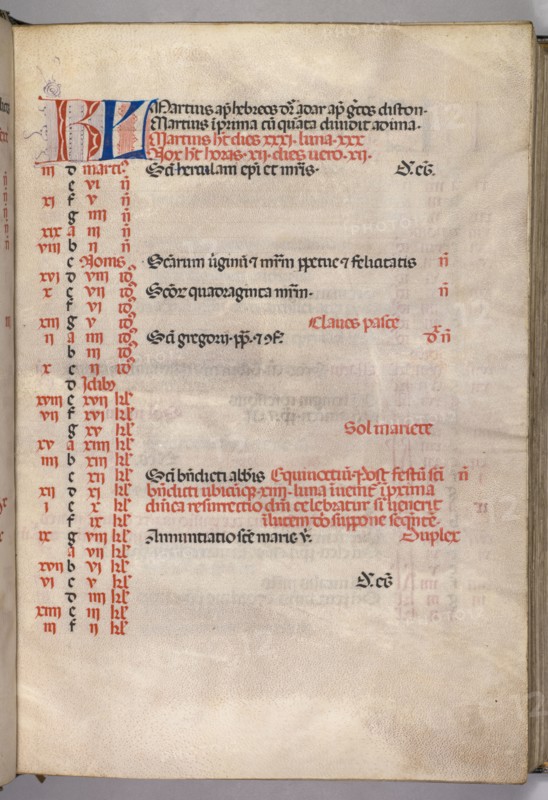 KL Martius ap hebreos dr adar ap grecos diston.
Martius i prima cu quarta diuidit adima.
Martius ht dies xxxi. luna. xxx
Nox ht horas. xii. dies uero. xii.
iii d martis Sci herculani epi et mris. D. eg.
e vi n
xi f v n
g iiii n
xix a iii n
viii b ii n
c Nonis Scarum uginu et mrm ppetue et felicitatis n
xvi d viii id
x e vii id Scor quadraginta mrm. n
f vi id
xiii g v id Claues pasce x
ii a iiii id Sci gregorii. pp. et 9f. d n
b iii id
x c ii id
d Idib
xviii e xvii kl
vii f xvi kl
g xv kl Sol in ariete
xv a xiiii kl
iiii b xiii kl
c xii kl Sci bndicti abbis Equinoctiu. Post festu sci n
xii d xi kl bndicti ubicuqz. xiiii. luna iuenit i prima
i e x kl dnica resurrectio dni celebratur si uenerit
f ix kl i lucem do suppone sequete.
ix g viii kl Annuntiatio sce marie v. Duplex
a vii kl
xvii b vi kl
vi c v kl D. eg
d iiii kl
xiiii e iii kl
iii f ii kl